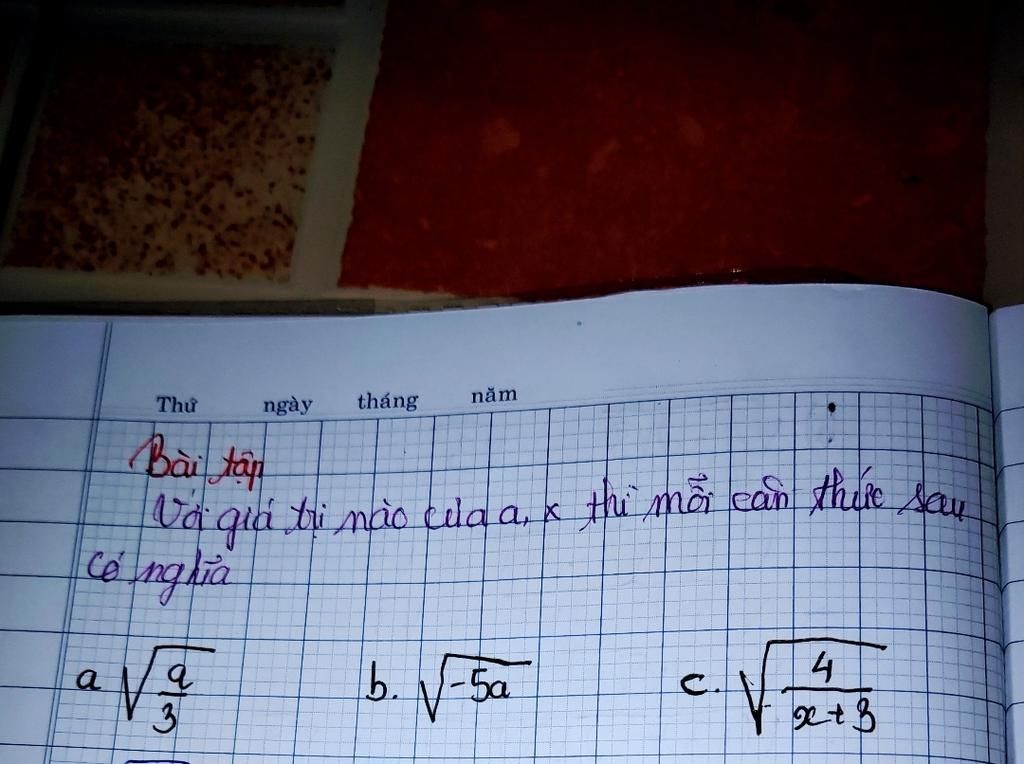 Thứ ngày tháng năm
Bài tập
Với giá trị nào của a, x thì mỗi căn thức sau
có nghĩa
a √(a/3) b. √(-5a) c. √(4/(x+3))